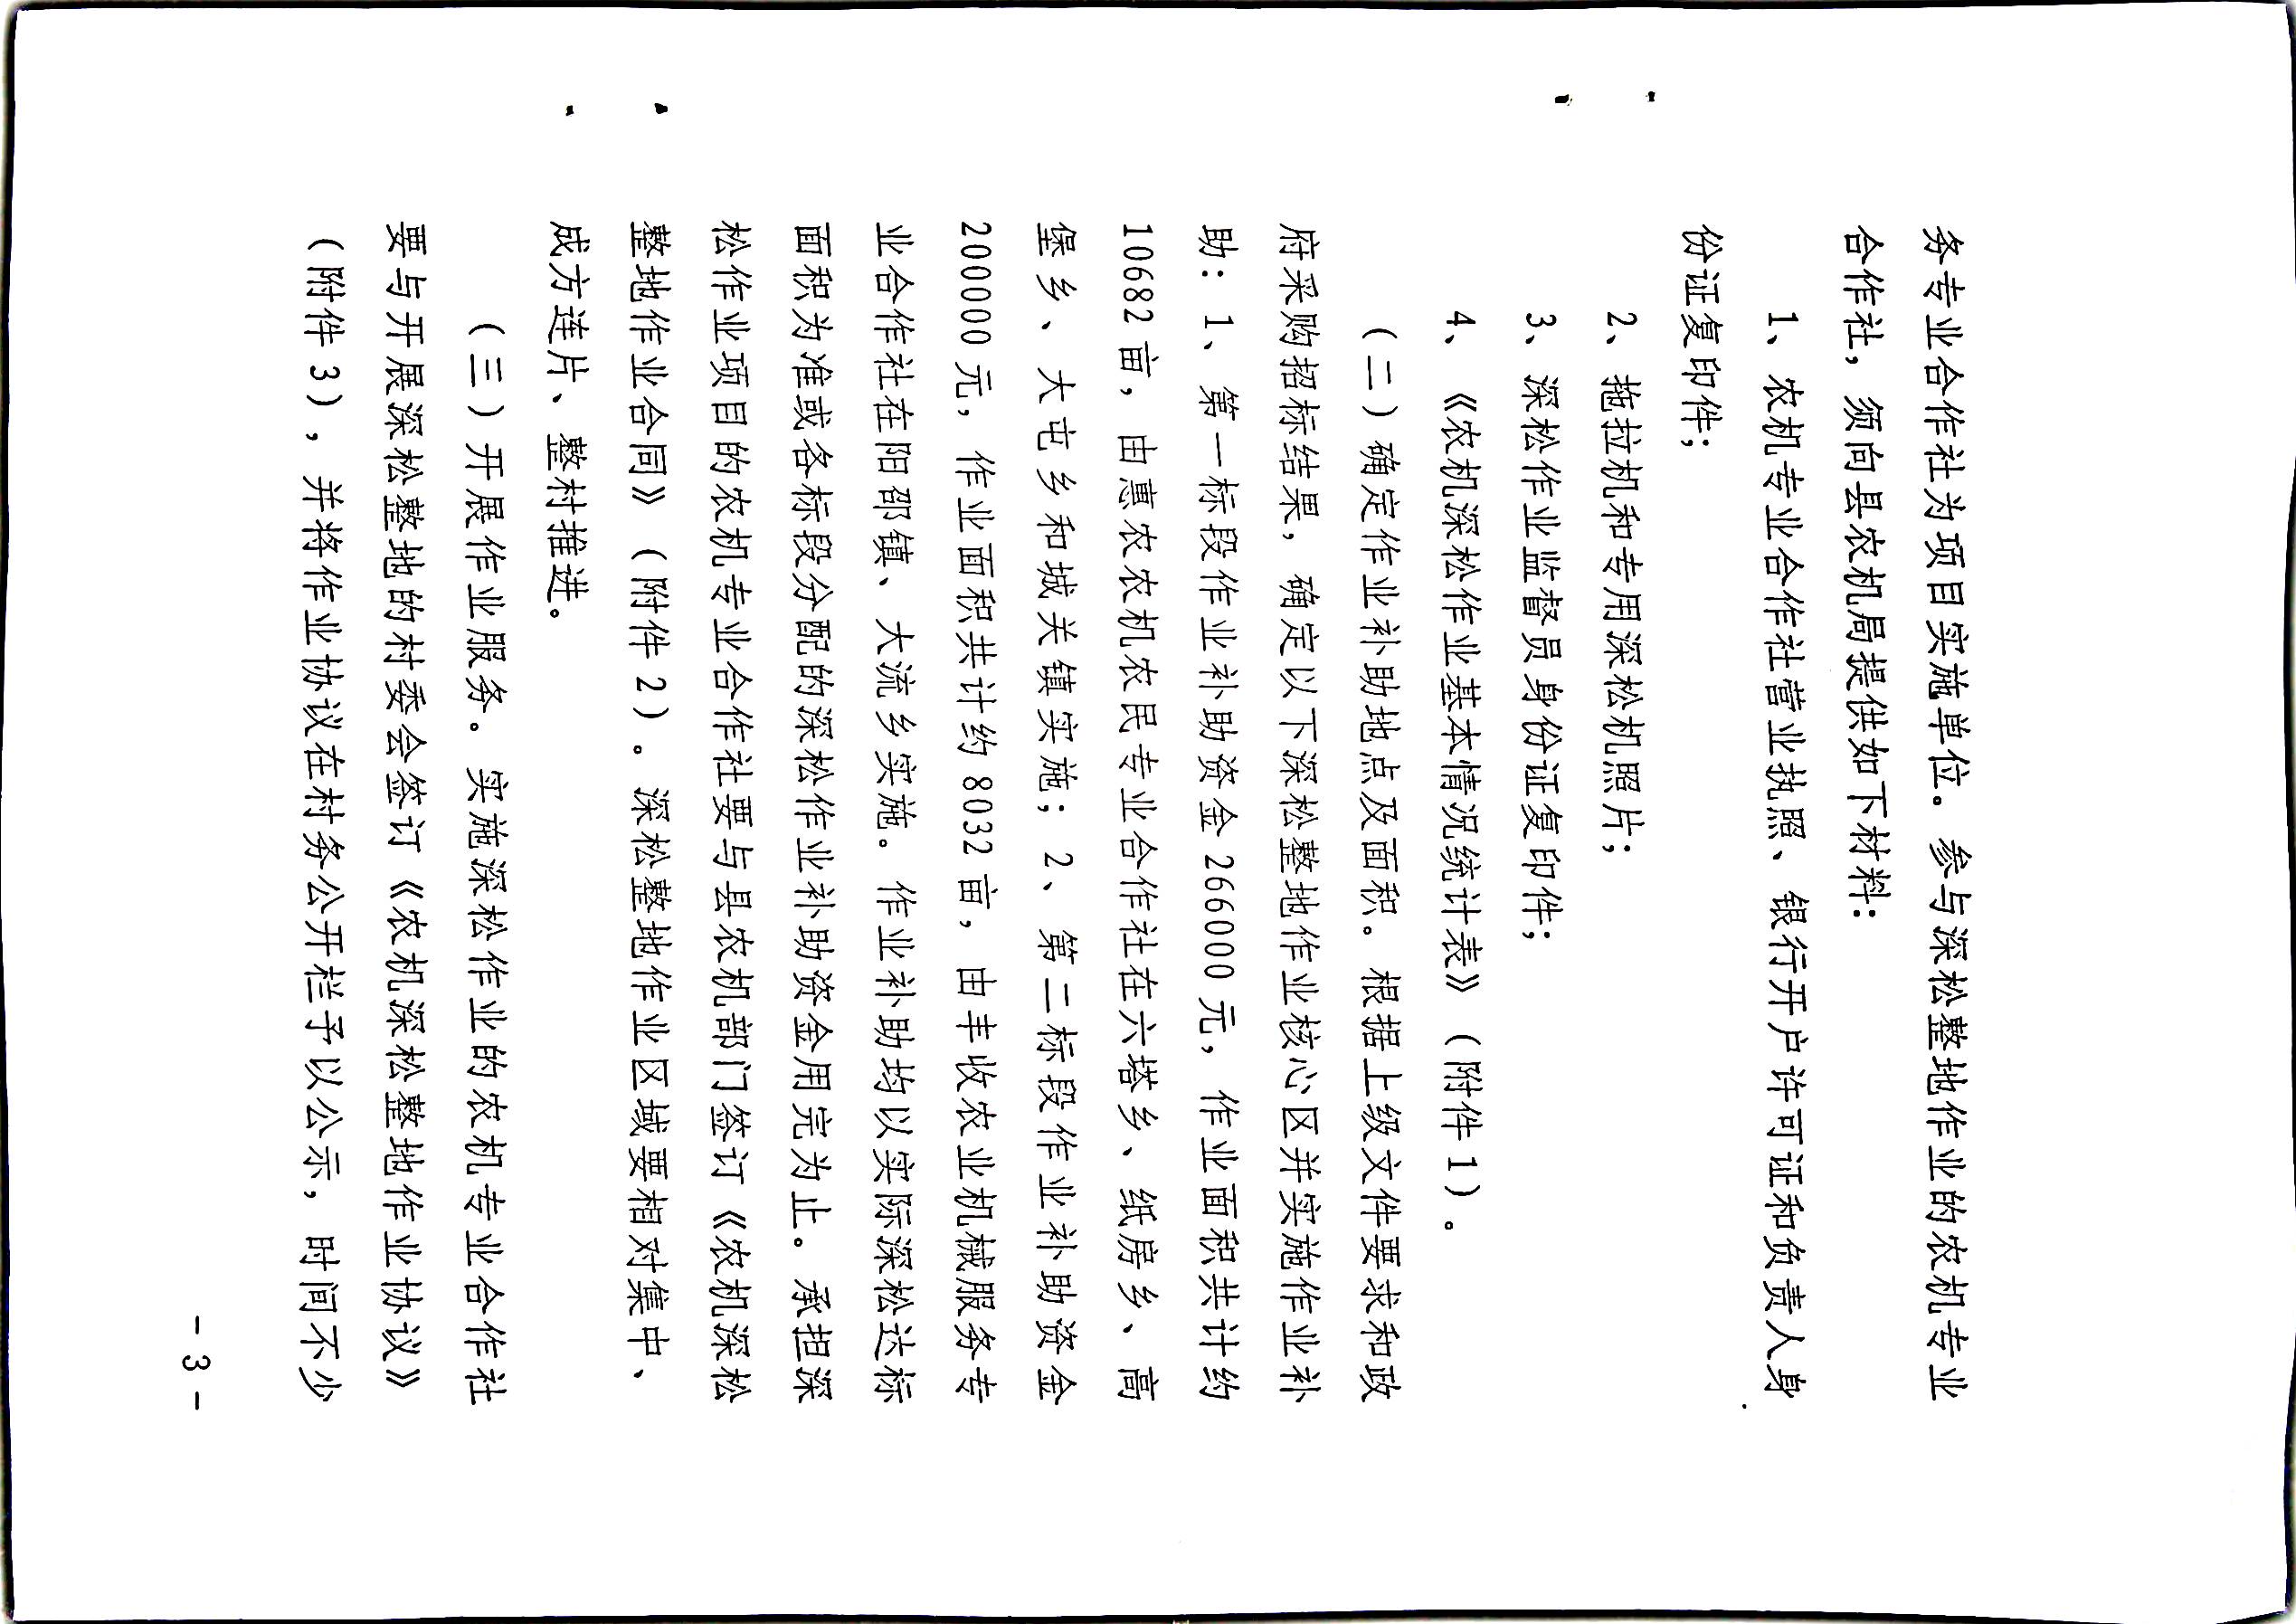 务专业合作社为项目实施单位。参与深松整地作业的农机专业
合作社，须向县农机局提供如下材料：
1、农机专业合作社营业执照、银行开户许可证和负责人身
份证复印件；
2、拖拉机和专用深松机照片；
3、深松作业监督员身份证复印件；
4、《农机深松作业基本情况统计表》（附件1）。
（二）确定作业补助地点及面积。根据上级文件要求和政
府采购招标结果，确定以下深松整地作业核心区并实施作业补
助：1、第一标段作业补助资金266000元，作业面积共计约
10682亩，由惠农农机农民专业合作社在六塔乡、纸房乡、高
堡乡、大屯乡和城关镇实施；2、第二标段作业补助资金
200000元，作业面积共计约8032亩，由丰收农业机械服务专
业合作社在阳邵镇、大流乡实施。作业补助均以实际深松达标
面积为准或各标段分配的深松作业补助资金用完为止。承担深
松作业项目的农机专业合作社要与县农机部门签订《农机深松
整地作业合同》（附件2）。深松整地作业区域要相对集中、
成方连片、整村推进。
（三）开展作业服务。实施深松作业的农机专业合作社
要与开展深松整地的村委会签订《农机深松整地作业协议》
（附件3），并将作业协议在村务公开栏予以公示，时间不少
－3－